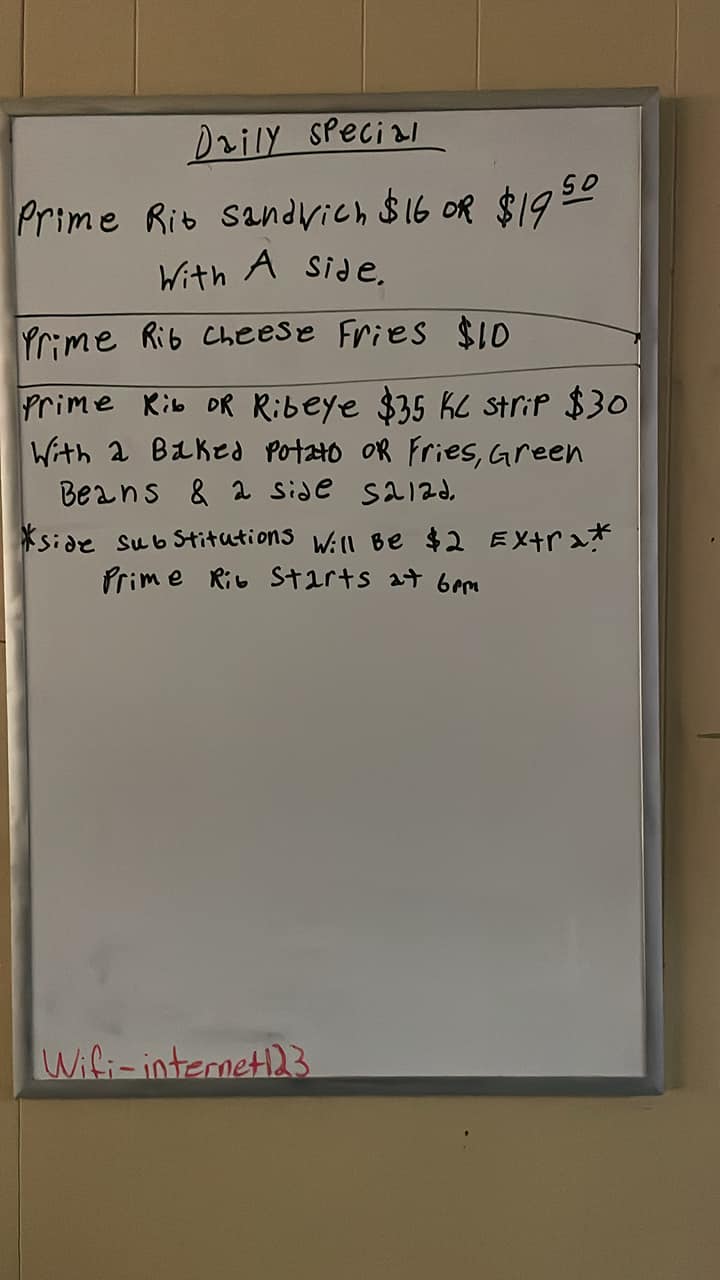 Daily Special
Prime Rib Sandwich $16 OR $19 50
With A Side.
Prime Rib Cheese Fries $10
Prime Rib OR Ribeye $35 KC Strip $30
With a Baked Potato OR Fries, Green
Beans & a side salad.
*Side Substitutions Will Be $2 Extra*
Prime Rib Starts at 6pm
Wifi-internet123